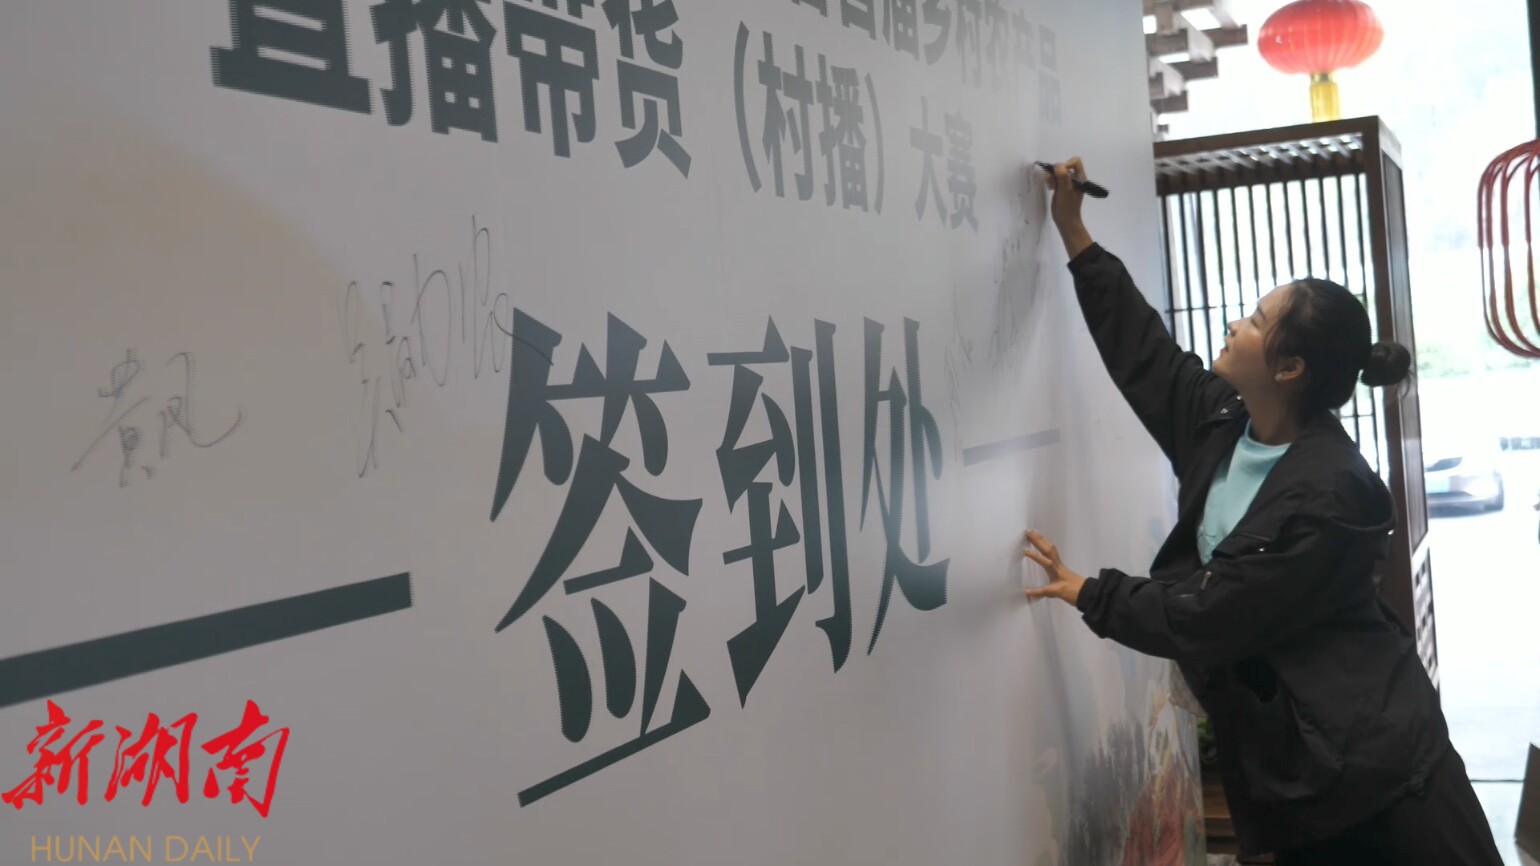 首届乡村农产品
直播带货（村播）大赛
签到处
黄凤
新湖南
HUNAN DAILY